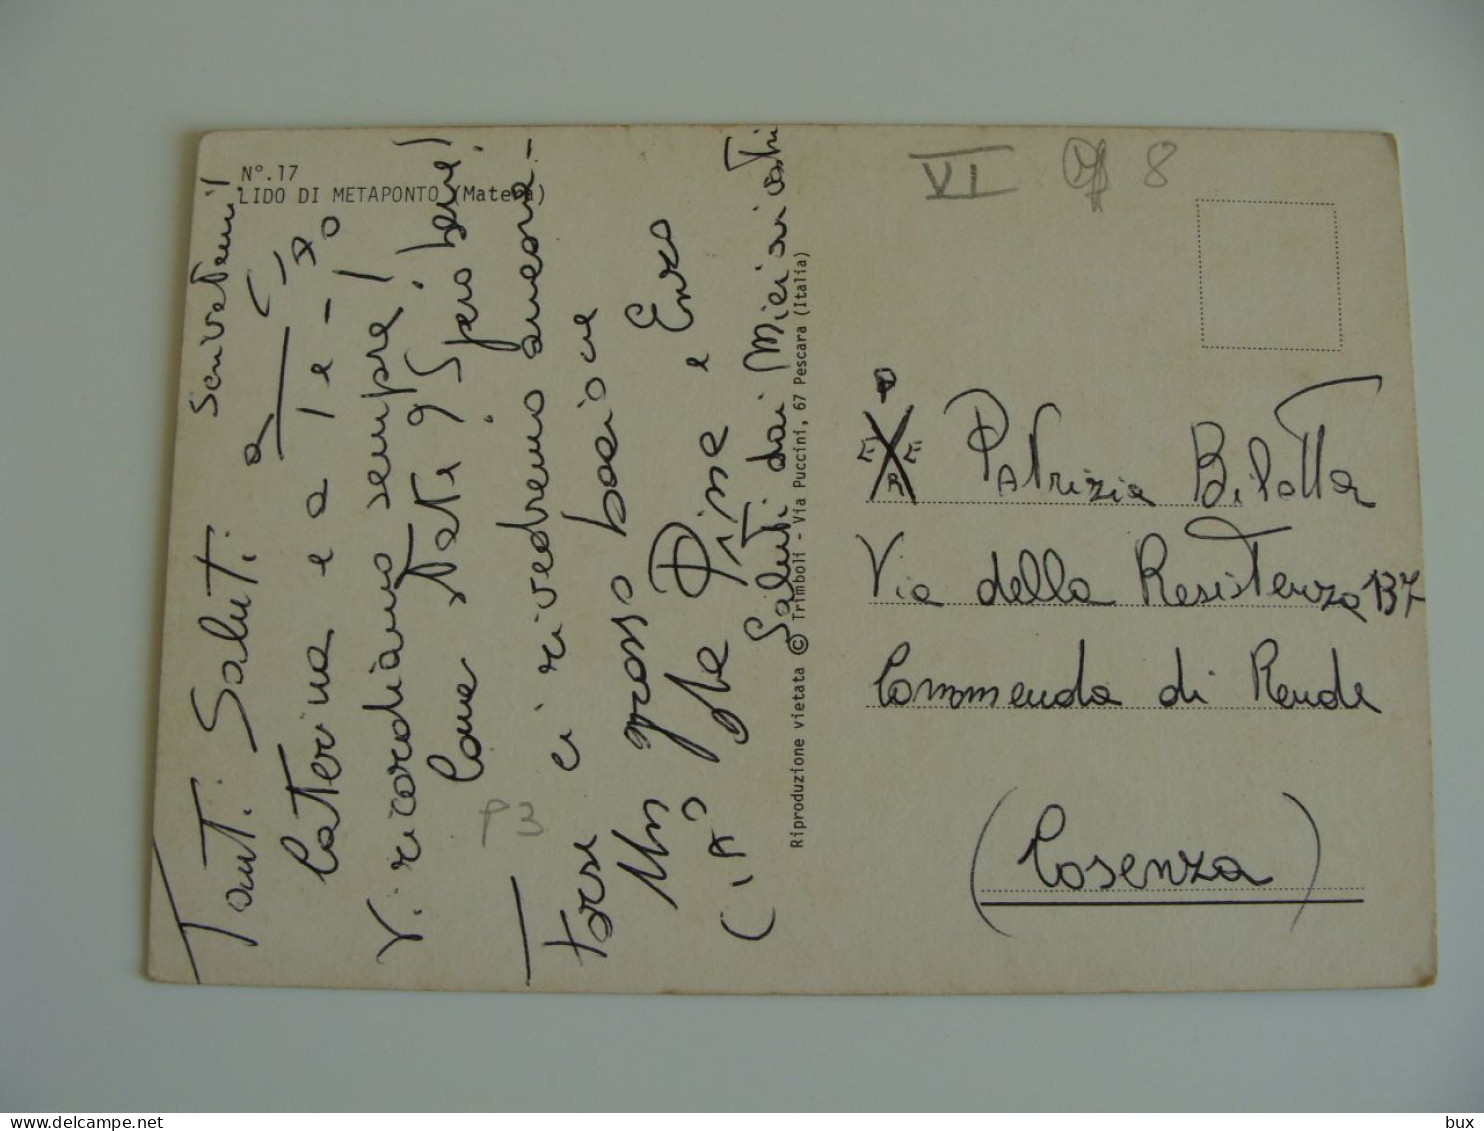 N°.17
LIDO DI METAPONTO (Matera)
Scrivetemi!
Tanti Saluti a
Caterina e a Te -
Vi ricordiamo sempre!
Come State? Spero bene!
Forse ci rivedremo ancora -
Un grosso bacione
Pina e Enzo
Saluti dai Miei ai vostri
CIAO
Riproduzione vietata © Trimboli - Via Puccini, 67 Pescara (Italia)
VI 8
P3
P
E E
R
Patrizia Bilotta
Via della Resistenza 137
Commenda di Rende
(Cosenza)
bux